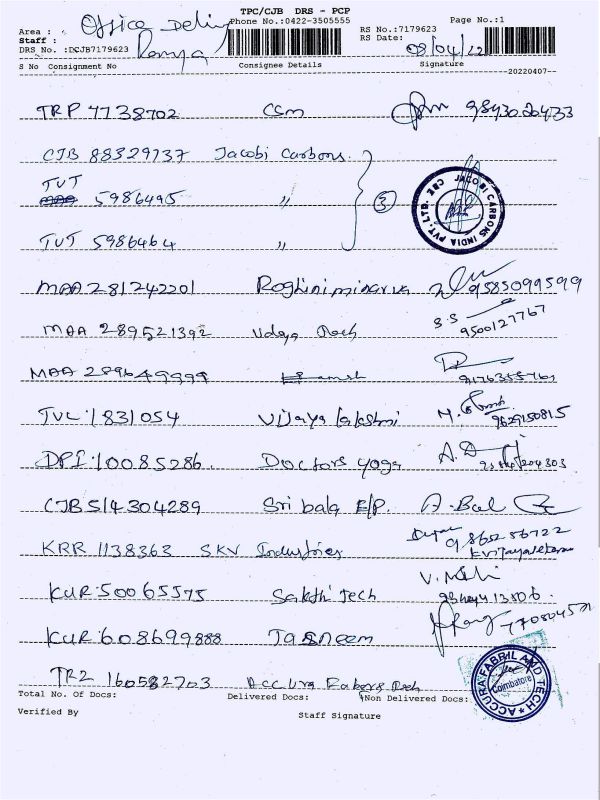 TPC/CJB DRS - PCP
Area : Office
Phone No.:0422-3505555
Page No.:1
Staff : Ramya
RS No.:7179623
DRS No. :DCJB7179623
RS Date: 08/04/22
S No Consignment No Consignee Details Signature
20220407
TRP 7738702 CSM 9843020433
CJB 88329737 Jacobi Carbons
TVT 5986495 "
3
JACOBI CARBONS INDIA PVT. LTD. CBE
TVT 5986464 "
MAA 281242201 9585099599
MAA 289521392 Udaya Tech S.S 9500127767
MAA 289649999
TVL 1831054 Vijaya lakshmi 9629150815
DPI 10085286 Doctors yoga
CJB 514304289 Sri bala E/P. A. Bal
KRR 1138363 SKV Industries 9865256722
KUR 50065575 Sakthi Tech
KUR 608699888 Tasneem
TRZ 160582703 Accura
ACCURA FABRIL AND TECH
Coimbatore
Total No. Of Docs: Delivered Docs: Non Delivered Docs:
Verified By Staff Signature